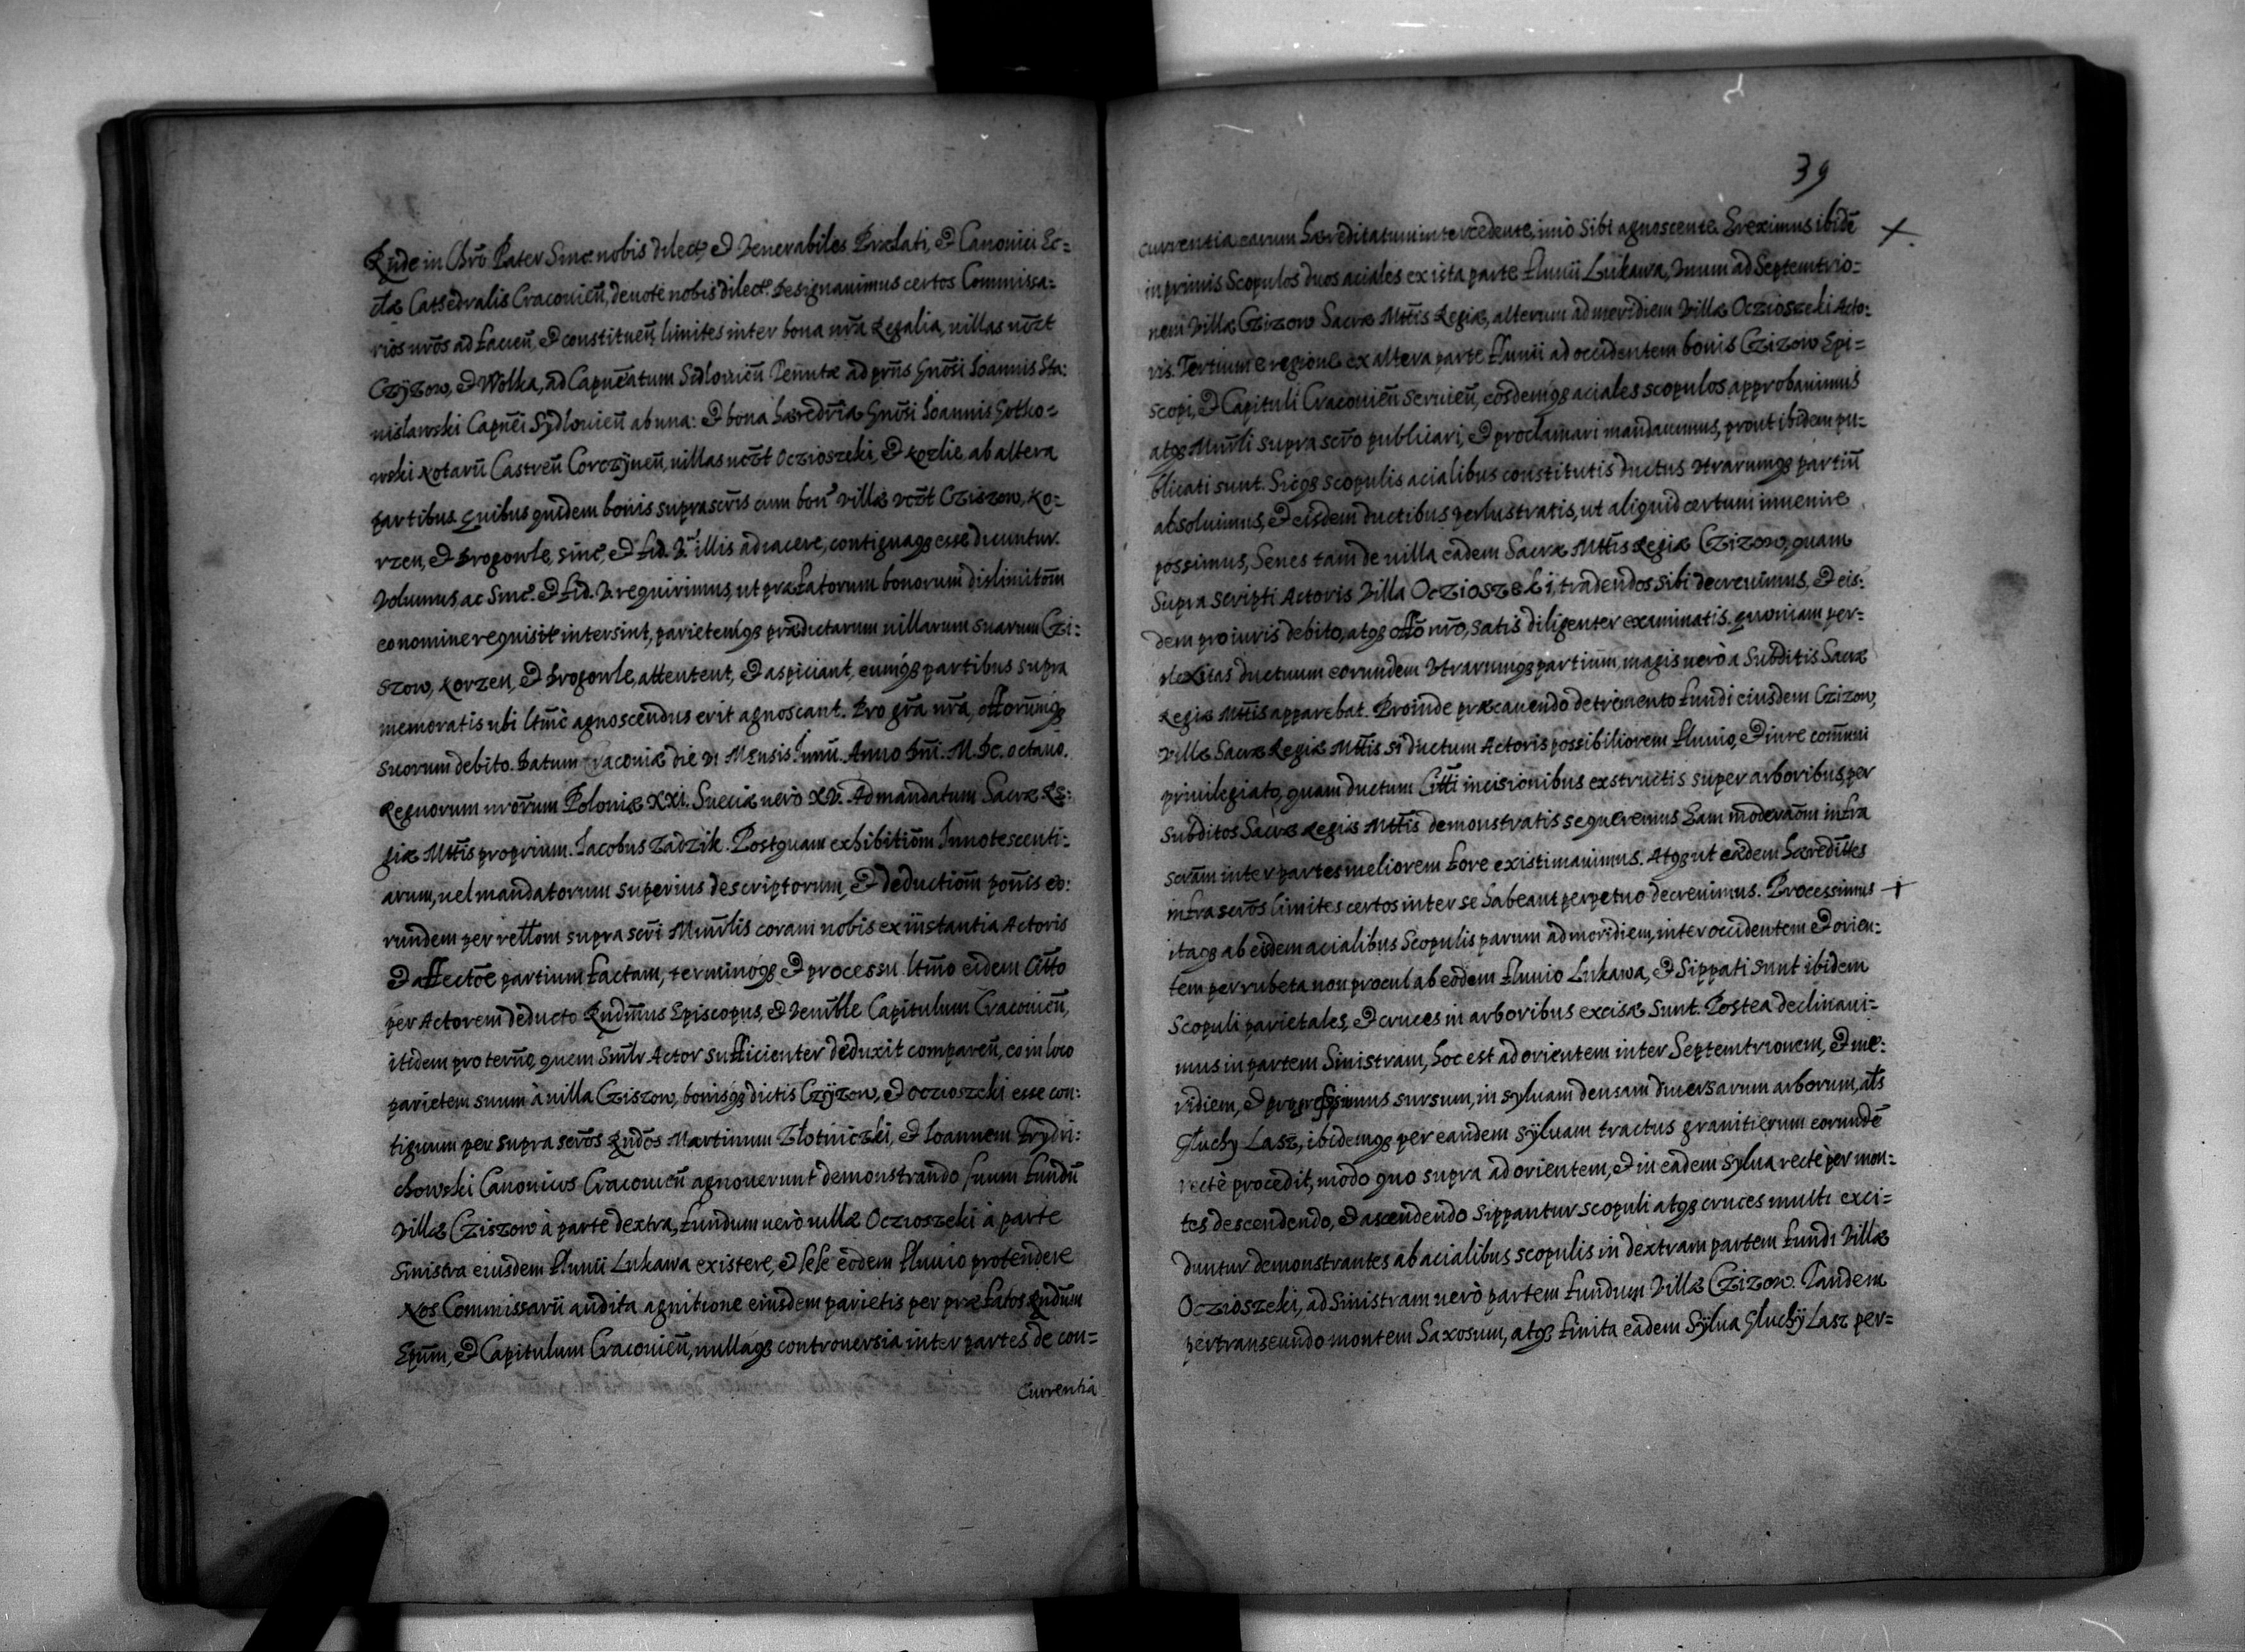 Rnde in Chrō Pater Sincē nobis dilectē & Venerabiles Prælati, & Canonici Ec=
clæ Cathedralis Cracovień, devotē nobis dilectē. Designavimus certos Commissa=
rios nrōs ad facień, & constituēń limites inter bona nrā Regalia, villas nūct
Czÿzow, & Wolka, ad Capnēatum Sidlovień Tenutæ ad prns Gnōsi Ioannis Sta:
nislawski Capnēi Sÿdlovień ab una: & bona hæredrīa Gnōsi Ioannis Gotko=
wski Notarÿ Castreń Corczÿneń, villas ncżt Oczioszeki, & Kozlie ab altera
partibus. Quibus quidem bonis suprascrīs cum bonē villæ ncōt Cziszow, Ko=
rzen, & Brogowle, sincē, & fid. V. illis adiacere, contiguasqꝫ esse dicuntur.
Volumus, ac Sincē. & fid. V. requirimus, ut præfatorum bonorum dislimitōm
eo nomine requisit̄ intersint, parietemqꝫ prædictarum villarum suarum Czi:
szow, Korzen, & Brogowle, attentent, & aspiciant, eumqꝫ partibus supra
memoratis ubi ltmē agnoscendus erit agnoscant. Pro grā nrā, offorumqꝫ
suorum debito. Datum Cracoviæ die VI Mensis Junÿ. Anno Dni. M. Dc. octavo.
Regnorum nrōrum Poloniæ XXI. Sueciæ verò XV. Ad mandatum Sacræ Re:
giæ Mttis proprium. Iacobus Zadzik. Postquam exhibitiōm Innotescenti:
arum, vel mandatorum superius descriptorum, & deductiōm ponīs eo:
rundem per rettom supra scrī Minrlis coram nobis ex instantia Actoris
& affectōe partium factam, terminoqꝫ & processu ltmo eidem Citto
per Actorem deducto Rndmus Episcopus, & Venrble Capitulum Cracovień,
itidem pro termo, quem Smlr Actor sufficienter deduxit compareń, eo in loco
parietem suum à villa Cziszow, bonisqꝫ dictis Czÿzow, & Oczioszeki esse con:
tiguum per supra scrōs Rndōs Martinum Złotniczki, & Ioannem Frydri:
chowski Canonicos Cracovień agnoverunt demonstrando suum fundū
villæ Cziszow à parte dextra, fundum verò villæ Oczioszeki à parte
sinistra eiusdem fluvii Lukawa existere, & sese eodem fluvio protendere
Nos Commissarii audita agnitione eiusdem parietis per præfatos Rndum
Epum, & Capitulum Cracovień, nullaqꝫ controversia inter partes de con=
currentia
39
currentia earum hæreditatum intercedente, imò sibi agnoscente. Ereximus ibidē ×
in primis Scopulos duos aciales ex ista parte fluvii Lukawa, Vnum ad Septemtrio=
nem Villæ Czizow Sacræ Mttis Regiæ, alterum ad meridiem Villæ Oczioszeki Acto:
ris. Tertium e regione ex altera parte fluvii ad occidentem bonis Czizow Epi=
scopi, & Capituli Cracovień servień, eosdemqꝫ aciales scopulos approbavimus
atqꝫ Minrli supra scrō publicari, & proclamari mandavimus, prout ibidem pu=
blicati sunt. Sicqꝫ scopulis acialibus constitutis ductus Vtrarumqꝫ partiū
absoluimus, & eisdem ductibus perlustratis, ut aliquid certum invenire
possimus, Senes tam de villa eadem Sacræ Mttis Regiæ Czizow, quam
Supra scripti Actoris Villa Oczioszeki, tradendos sibi decrevimus, & eis:
dem pro iuris debito, atqꝫ offō nrō, satis diligenter examinatis. quoniam per=
plexitas ductuum eorundem Vtrarumqꝫ partium, magis verò a Subditis Sacræ
Regiæ Mttis apparebat. Proinde præcavendo detrimento fundi eiusdem Czizow,
Villæ Sacræ Regiæ Mttis si ductum Actoris possibiliorem fluvio, & iure commūi
privilegiato, quam ductum Citti incisionibus exstructis super arboribus, per
subditos Sacræ Regiæ Mttis demonstratis sequeremus Eam moderaōm infra
scrām inter partes meliorem fore existimavimus. Atqꝫ ut eædem hæreditttes
infra scrōs limites certos inter se habeant perpetuo decrevimus. Processimus +
itaqꝫ ab eisdem acialibus Scopulis parum ad meridiem, inter occidentem & orien:
tem per rubeta non procul ab eodem fluvio Lukawa, & Sippati sunt ibidem
Scopuli parietales, & cruces in arboribus excisæ sunt. Postea declinavi=
mus in partem Sinistram, hoc est ad orientem inter Septemtrionem, & me:
ridiem, & progressimus sursum, in sylvam densam diversarum arborum, als
Głuchy Lasz, ibidemqꝫ per eandem sÿlvam tractus granitierum eorundē
rectè procedit, modo quo supra ad orientem, & in eadem sylva rectè per mon:
tes descendendo, & ascendendo Sippantur scopuli atqꝫ cruces multi exci=
duntur demonstrantes ab acialibus scopulis in dextram partem fundi Villæ
Oczioszeki, ad Sinistram verò partem fundum Villæ Czizow. Tandem
pertranseundo montem Saxosum, atqꝫ finita eadem Sÿlva Gluchÿ Lasz per=